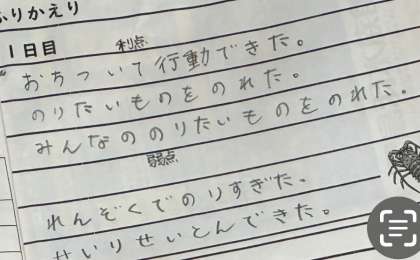 ふりかえり
1日目
利点
おちついて行動できた。
のりたいものをのれた。
みんなののりたいものをのれた。
弱点
れんぞくでのりすぎた。
せいりせいとんできた。